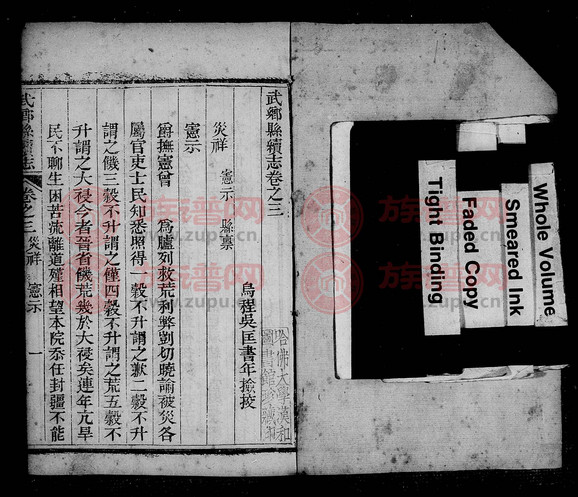 武鄉縣續志卷之三
烏程吳匡書年撿挍
災祥
憲示　縣稟
憲示
爵撫憲曾　為臚列救荒利弊剴切曉諭被災各
屬官吏士民知悉照得一穀不升謂之歉二穀不升
謂之饑三穀不升謂之僅四穀不升謂之荒五穀不
升謂之大祲今者晉省饑荒幾於大祲矣連年亢旱
民不聊生困苦流離道殣相望本院忝任封疆不能
武鄉縣續志
卷之三
災祥
憲示
一
哈佛大學漢和
圖書館珍藏印
Whole Volume
Smeared Ink
Faded Copy
Tight Binding
族譜网
www.zupu.cn